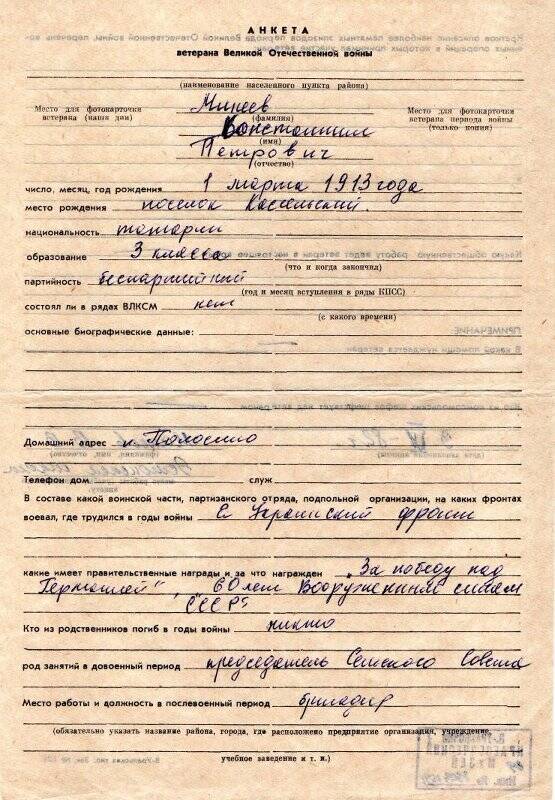 АНКЕТА
ветерана Великой Отечественной войны
(наименование населенного пункта района)
Место для фотокарточки
ветерана (наши дни)
Минеев
(фамилия)
Константин
(имя)
Петрович
(отчество)
Место для фотокарточки
ветерана периода войны
(только копия)
число, месяц, год рождения 1 марта 1913 года
место рождения поселок Кассельский.
национальность татарин
образование 3 класса
(что и когда закончил)
партийность беспартийный
(год и месяц вступления в ряды КПСС)
состоял ли в рядах ВЛКСМ нет
(с какого времени)
основные биографические данные:
Домашний адрес п.
Телефон дом служ
В составе какой воинской части, партизанского отряда, подпольной организации, на каких фронтах
воевал, где трудился в годы войны Украинский фронт
какие имеет правительственные награды и за что награжден „За победу над
Германией", 60 лет Вооруженным силам
СССР"
Кто из родственников погиб в годы войны никто
род занятий в довоенный период председатель Сельского Совета
Место работы и должность в послевоенный период бригадир
(обязательно указать название района, города, где расположено предприятие организация, учреждение,
учебное заведение и т. п.)